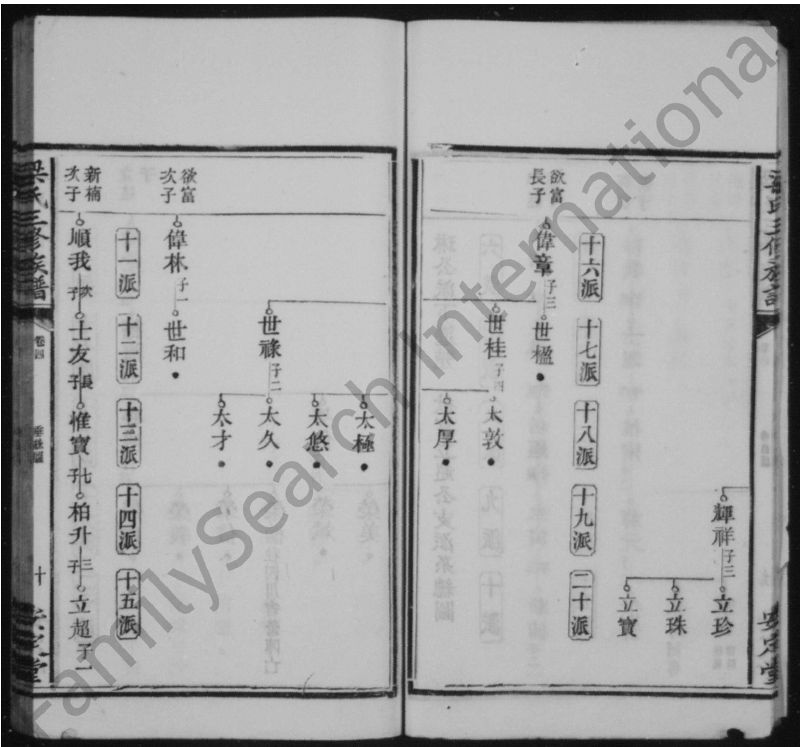 梁氏三修族譜
安定堂
輝祥 子三 立珍
立珠
立寶
十六派 十七派 十八派 十九派 二十派
欲富長子 偉章 子三 世楹
世桂 子四 太敦
太厚
太極
太悠
世祿 子二 太久
太才
欲富次子 偉林 子一 世和
十一派 十二派 十三派 十四派 十五派
新楠次子 順我 次子 士友 長子 惟寶 七子 柏升 三子 立超 子一
梁氏三修族譜 卷四 垂絲圖 十 安定堂
FamilySearch International